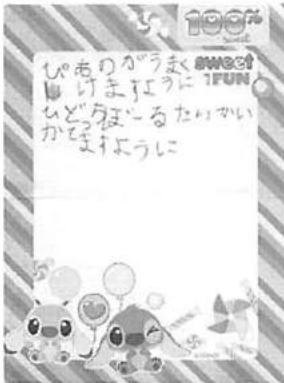 100%
sweet
1FUN
ぴあのがうまく
しけますように
ひどっぼーるたいかい
かてますように